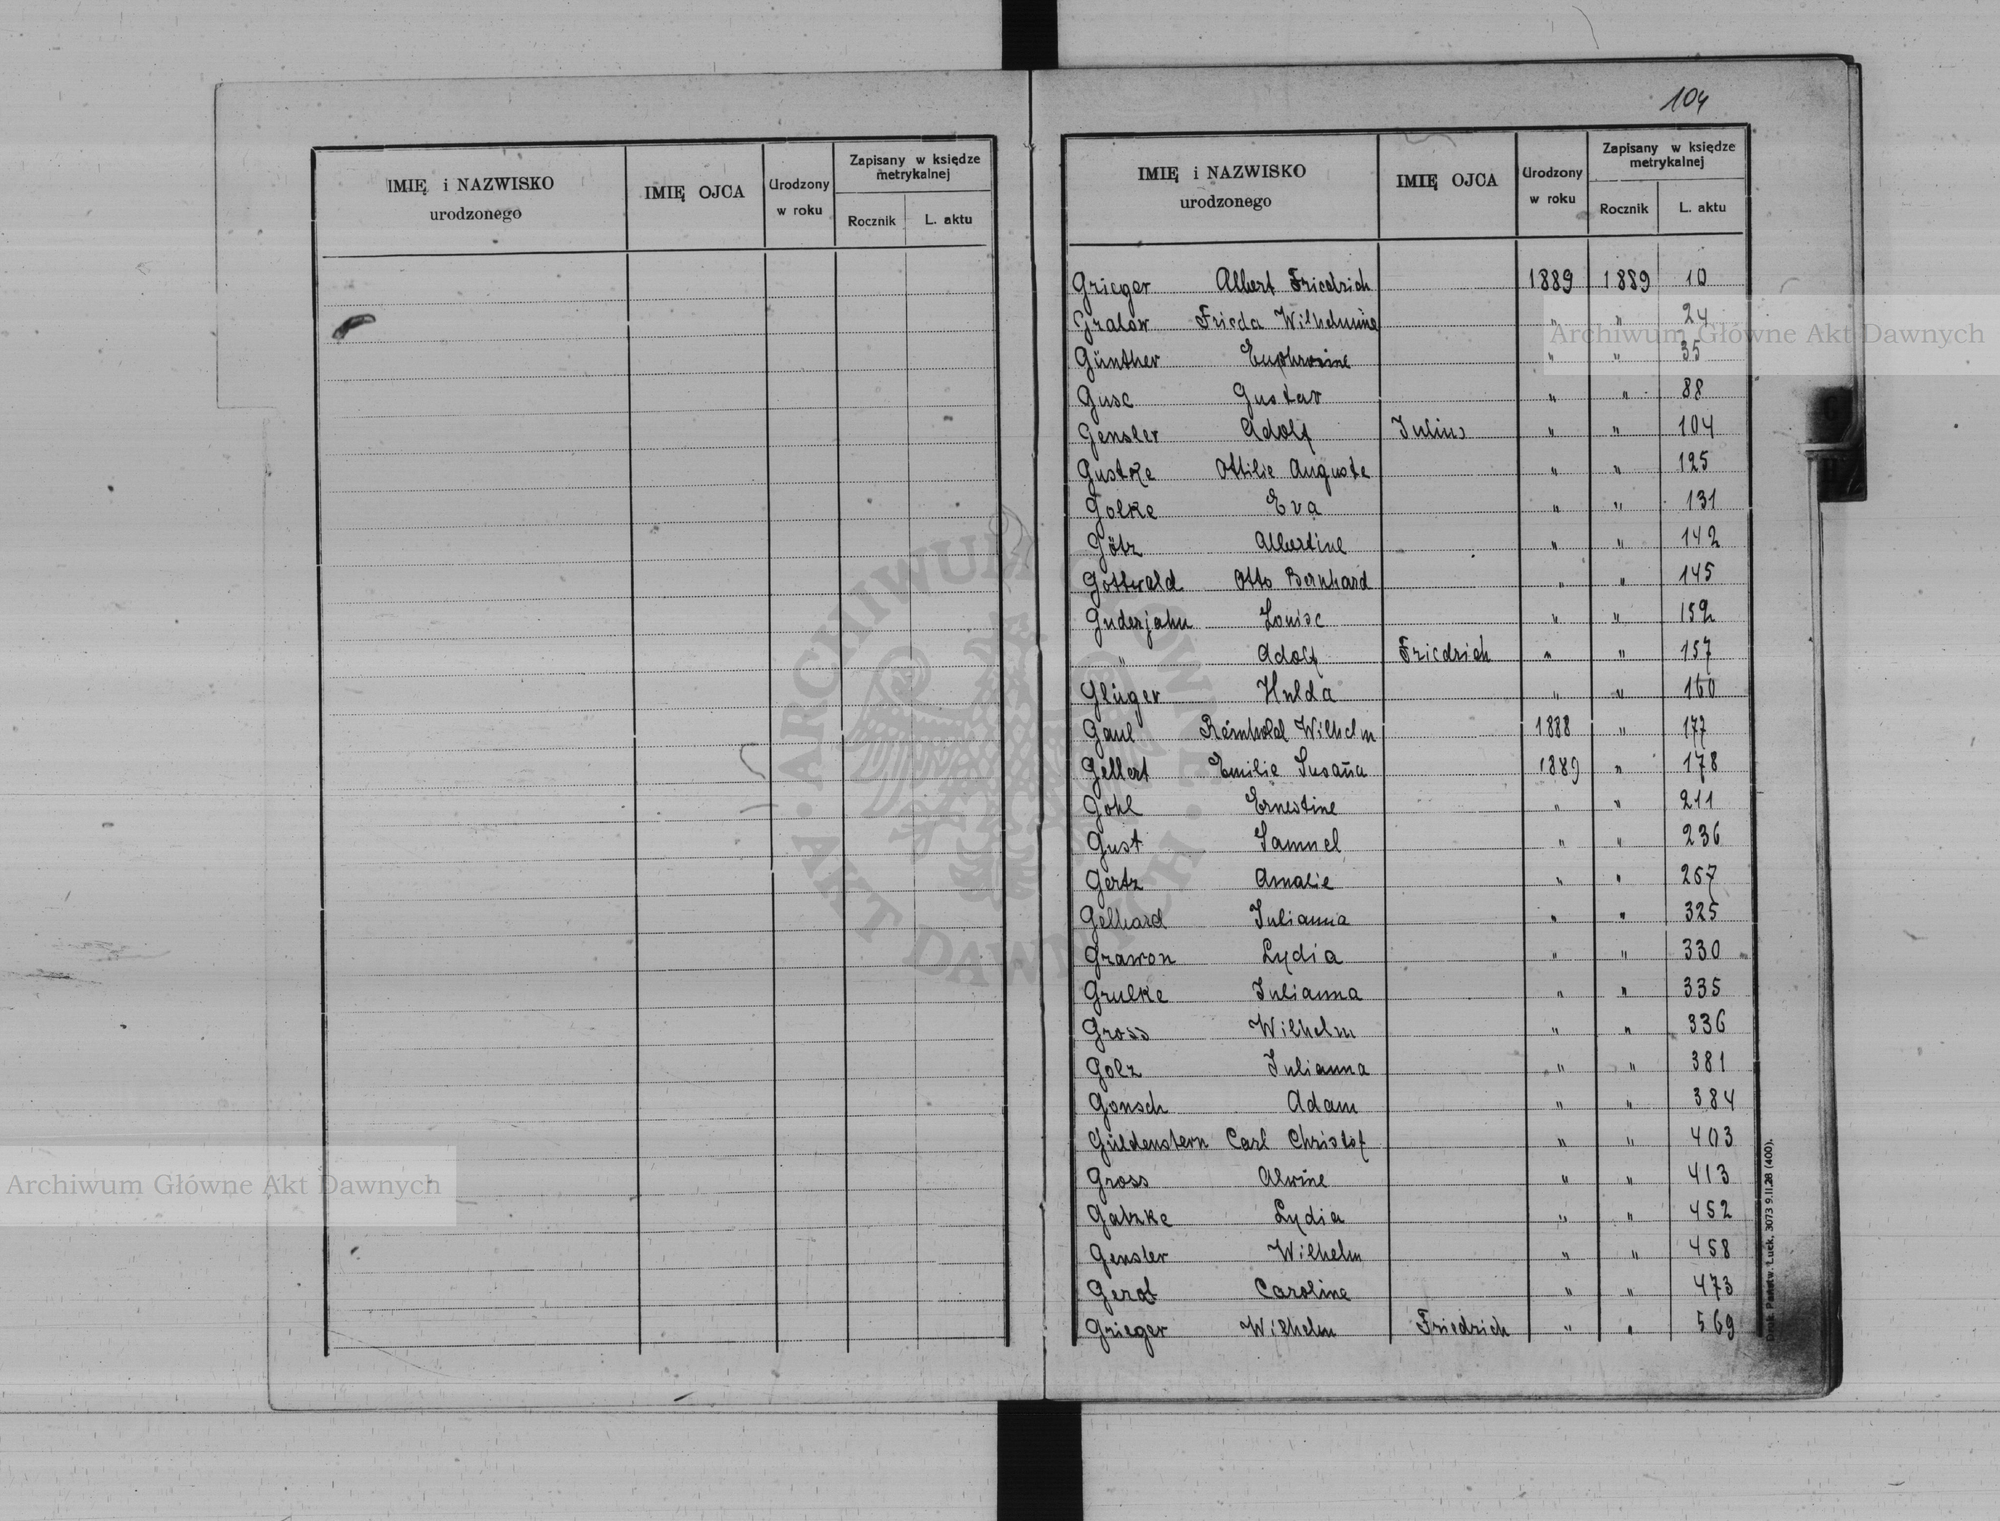 104
IMIĘ i NAZWISKO
urodzonego
IMIĘ OJCA
Urodzony
w roku
Zapisany w księdze
metrykalnej
Rocznik
L. aktu
IMIĘ i NAZWISKO
urodzonego
IMIĘ OJCA
Urodzony
w roku
Zapisany w księdze
metrykalnej
Rocznik
L. aktu
Grieger Albert Friedrich 1889 1889 10
Gralow Frieda Wilhelmine " " 24
Günther Euphrosine " " 35
Guse Gustav " " 88
Gensler Adolf Julius " " 104
Gustke Ottilie Auguste " " 125
Golke Eva " " 131
Götz Albertine " " 142
Gottwald Otto Bernhard " " 145
Guderjahn Louise " " 152
" Adolf Friedrich " " 157
Glüger Hulda " " 160
Gaul Reinhold Wilhelm 1888 " 177
Gellert Emilie Susaña 1889 " 178
Gohl Ernestine " " 211
Gust Samuel " " 236
Gertz Amalie " " 267
Gelhard Julianna " " 325
Grawon Lydia " " 330
Grulke Julianna " " 335
Gross Wilhelm " " 336
Golz Julianna " " 381
Gonsch Adam " " 384
Güldenstern Carl Christof " " 403
Gross Alwine " " 413
Gatzke Lydia " " 452
Gensler Wilhelm " " 458
Caroline " " 473
Grieger Wilhelm Friedrich " " 569
Druk. Państw. Łuck. 3073 9.II.28 (400).
Archiwum Główne Akt Dawnych
ARCHIWUM GŁÓWNE AKT DAWNYCH
Archiwum Główne Akt Dawnych